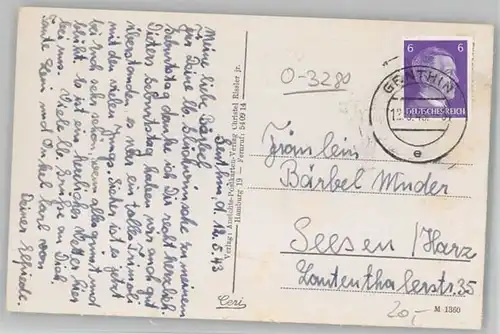 Genthin, d. 12.5.43
Meine liebe Bärbel!
Für Deine lb. Glückwünsche zu meinem
Geburtstag danke ich Dir recht herzlich.
Dieters Geburtstag haben wir auch gut
überstanden, es war ein toller Trubel
mit den vielen Jungs. Sicher ist es jetzt
bei Euch sehr schön, wenn alles grünt und
blüht. Es ist ein herrliches Wetter hier
bei uns. Viele lb. Grüße an Dich,
Tante und Onkel Karl von
Deiner Elfriede.
Verlag: Ansichts-Postkarten-Verlag Christel Bissler jr.
Hamburg 19 — Fernruf: 54 09 14
Ceri
O-3280
6 6
DEUTSCHES REICH
GENTHIN
e
Fräulein
Bärbel Muder
Seesen / Harz
Lautenthalerstr. 35
20,-
M 1360